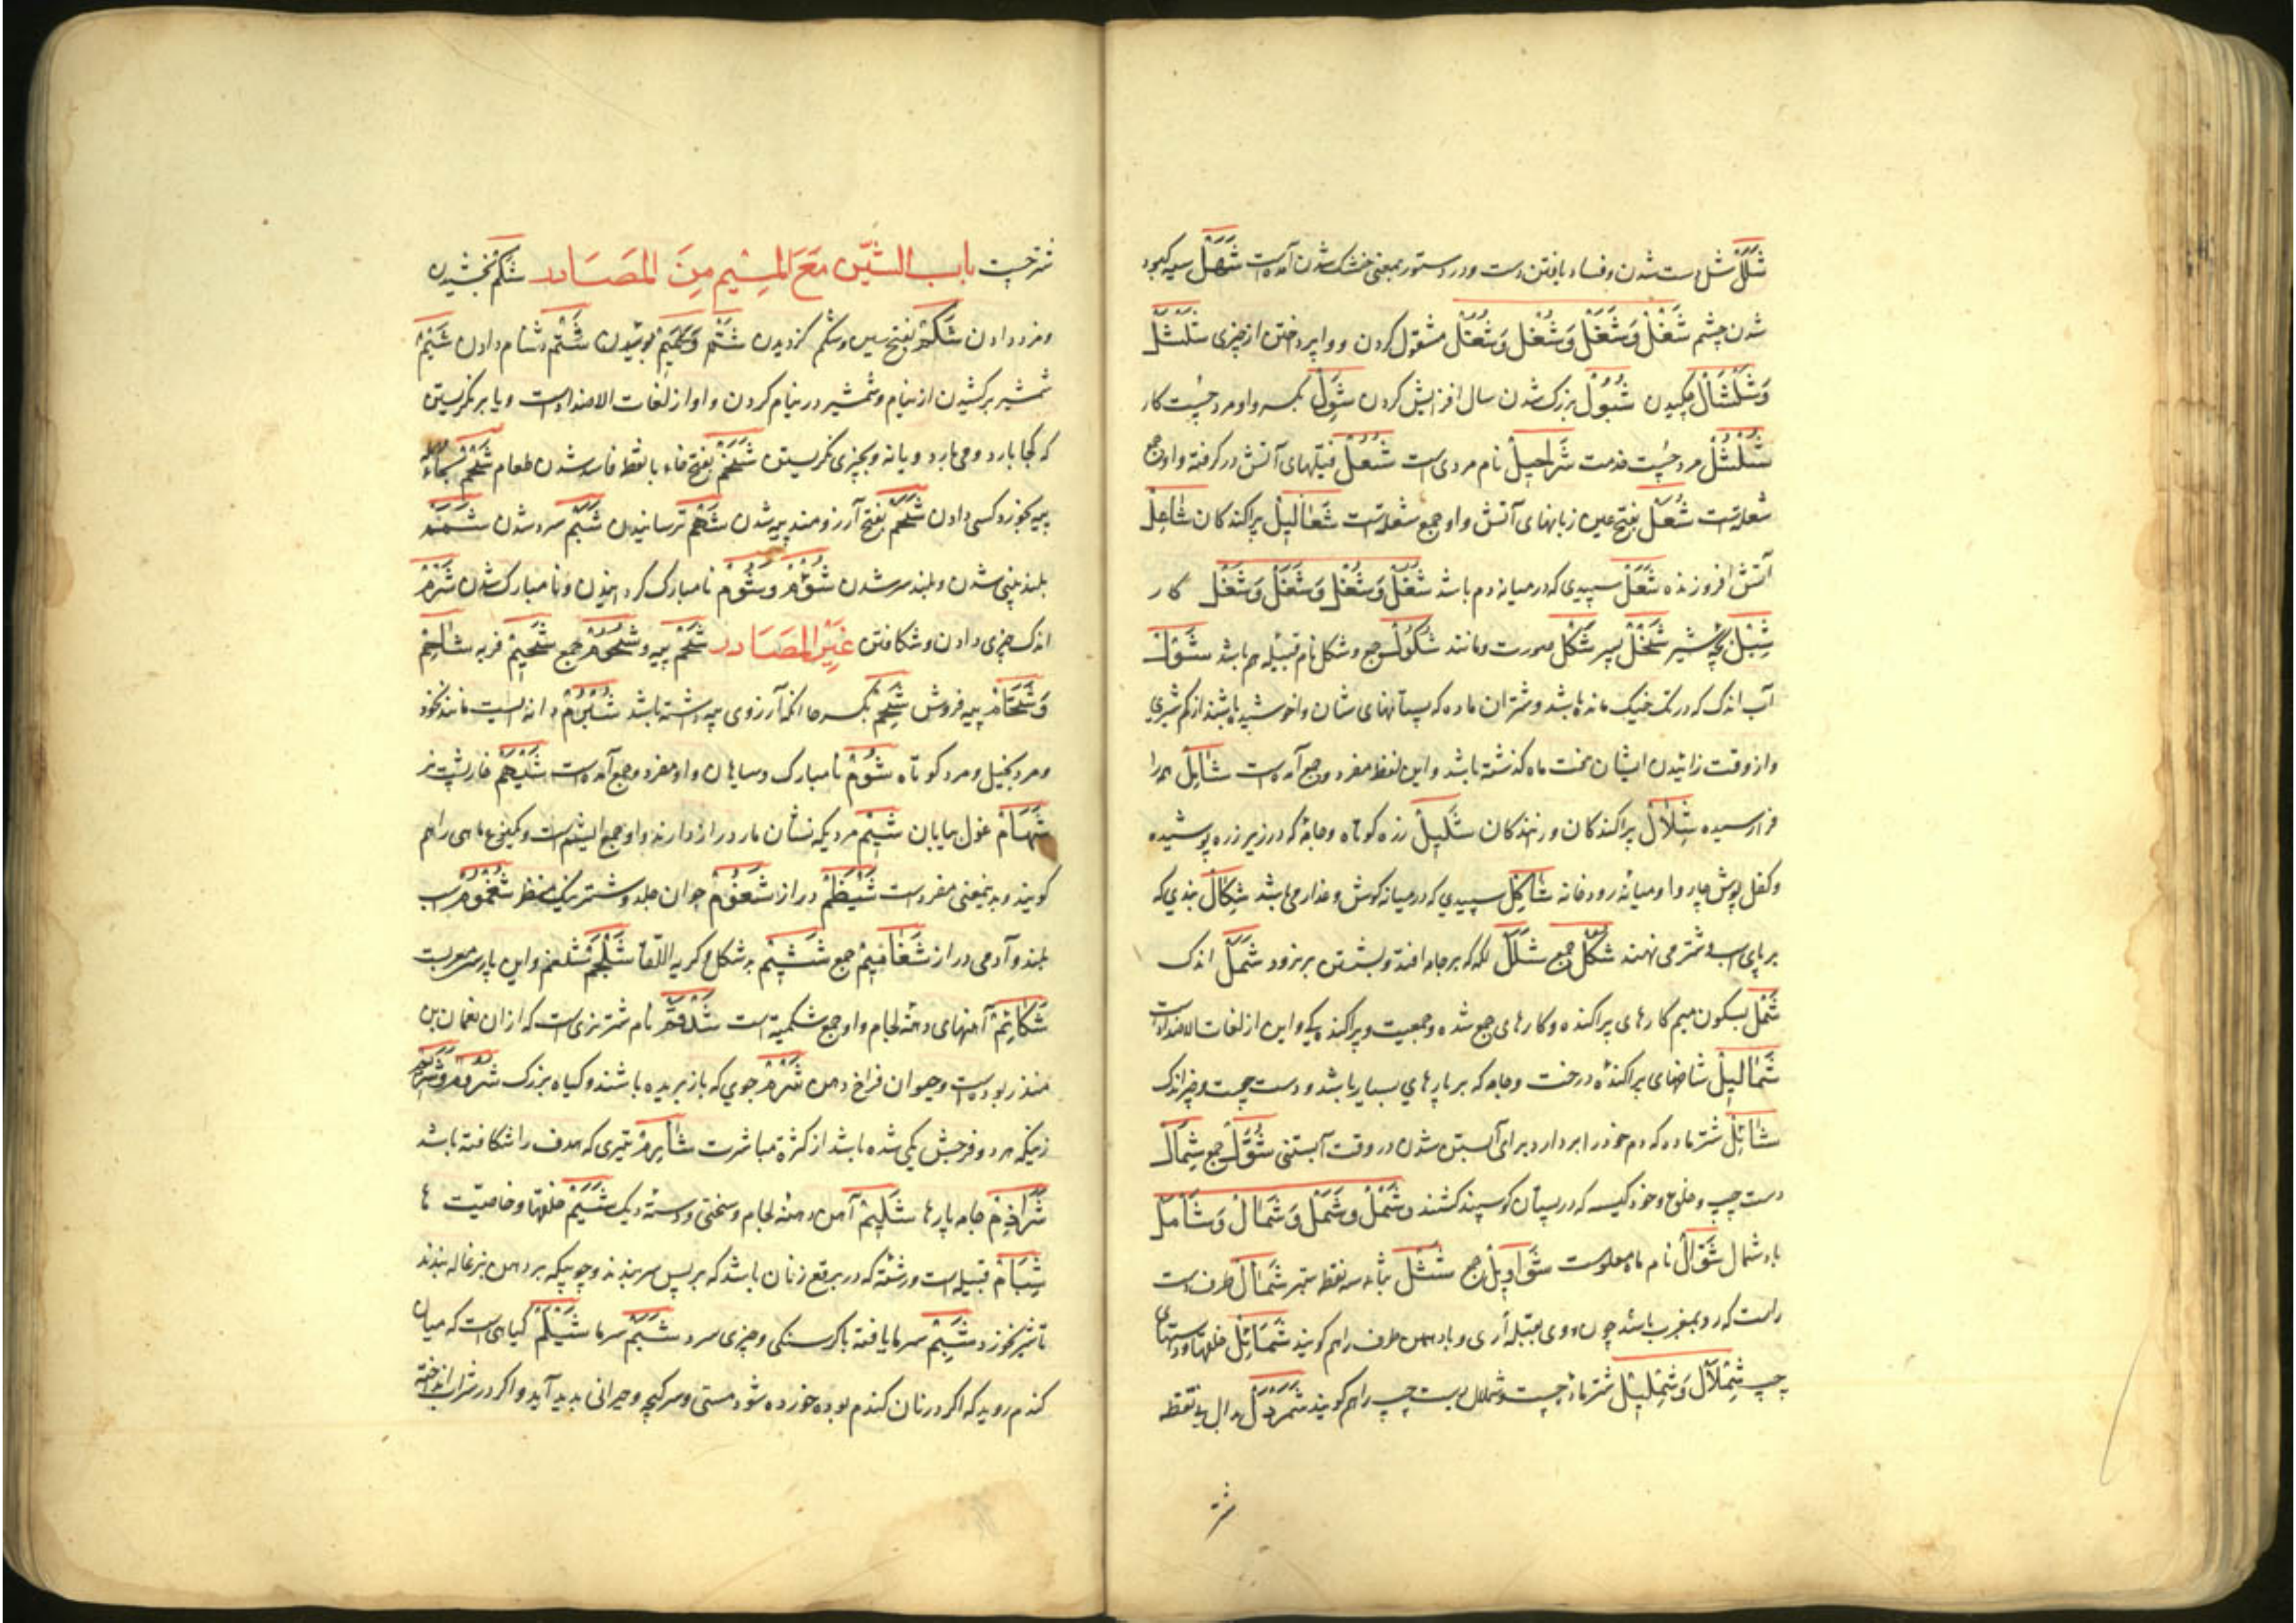 شَلَلٌ شل دست شدن و فساد یافتن دست و در دستور بمعنی خشک شدن آمده است شَهَلٌ سیه کبود
شدن چشم شَغْلٌ وَشَغَلٌ وَشُغْلٌ وَشُغُلٌ مشغول کردن و واپرداختن از چیزی شَلْشَلَةٌ
وَشَلْشَالٌ چکیدن شُبُوْلٌ بزرک شدن سال افزایش کردن شَوِلٌ بکسر واو مرد چست کار
شُلْشُلٌ مرد چست خدمت شَرَاحِیلُ نام مردی است شُعُلٌ فتیلهای آتش در کرفته واو جمع
شعلة است شُعَلٌ بفتح عین زبانهای آتش واو جمع شعلة است شَعَالِیلُ پراکندکان شَاعِلٌ
آتش افروزنده شَعَلٌ سپیدی که در میانه دم باشد شُغُلٌ وَشُغْلٌ وَشَغَلٌ وَشَغْلٌ کار
شِبْلٌ بچه شیر شَخْلٌ پسر شَکْلٌ صورت و مانند شُکُولٌ جمع و شکل نام قبیله هم باشد شَوْلٌ
آب اندک که در تک خیک مانده باشد و شتران ماده که پستانهای شان واخوشیده باشند از کم شیری
واز وقت زائیدن ایشان هفت ماه کذشته باشد و این لفظ مفرد و جمع آمده است شَامِلٌ همه را
فرا رسیده شِلَالٌ پراکندکان و رانندکان شَلِیلٌ زره کوتاه و جامه که در زیر زره پوشیده
و کفل پوش چاروا و میانه رودخانه شَاکِلٌ سپیدی که در میانه کوش و عذار می باشد شِکَالٌ بندی که
بر پای اسب و شتر می نهند شُکُلٌ جمع شَلَلٌ لکه که بر جامه افتد و بشستن برنرود شَمَلٌ اندک
شَمْلٌ بسکون میم کارهای پراکنده و کارهای جمع شده و جمعیت و پراکنده یکی و این از لغات الاضداد است
شَمَالِیلُ شاخهای پراکنده درخت و جامه که بر پارهای بسیار باشد و دست چپ و چیز اندک
شَائِلٌ شتر ماده که دم خود را بردارد برای آبستن شدن در وقت آبستنی شُوَّلٌ جمع شِمَالٌ
دست چپ و خلق و خو و کیسه که در پستان کوسپند کشند و شَمْلٌ وَشَمَلٌ وَشَمَالٌ وَشَأْمَلٌ
باد شمال شَوَّالٌ نام ماه معلوم است شَوَاوِیلُ جمع شَثْلٌ بثاء سه نقطه سطبر شَمَالٌ طرف دست
راست که رو بمغرب باشد چون روی بقبله آری و باد همین طرف را هم کویند شَمَائِلُ خلقها و دستهای
چپ شِمْلَالٌ وَشِمْلِیلٌ شتر ماده چست و شملال دست چپ را هم کویند شَمَرْدَلٌ بدال بی نقطه
شتر
شتر چست باب الشّین مَعَ المیم مِنَ المَصَادر شُکْمٌ بخشیدن
و مزد دادن شَکْمٌ بفتح شین و شکم کزیدن شَتْمٌ وَکَمْتِیمٌ پوشیدن شَتْمٌ دشنام دادن شَیْمٌ
شمشیر برکشیدن از نیام و شمشیر در نیام کردن واو از لغات الاضداد است و با بر نکریستن
که کجا بارد و می بارد و یا نه و بچیزی نکریستن شَخَمٌ بفتح خاء با نقطه فاسد شدن طعام شَحْمٌ بحاء
پیه بخورد کسی دادن شَحَمٌ بفتح آرزومند پیه شدن شَهْمٌ ترسانیدن شَبَمٌ سرد شدن شَمَمٌ
بلند بینی شدن و بلند سر شدن شُؤْمٌ وشُوْمٌ نامبارک کردانیدن و نامبارک شدن شَرْمٌ
اندک چیزی دادن و شکافتن غَیْرُ المَصَادر شَحْمٌ پیه و شُحُوْمٌ جمع شَحِیمٌ فربه شَاحِمٌ
وَشَحَّامٌ پیه فروش شَحِمٌ بکسر حا آنکه آرزوی پیه داشته باشد شُبْرُمٌ دانه ایست مانند نخود
و مرد بخیل و مرد کوتاه شُوْمٌ نامبارک و سیاهان واو مفرد و جمع آمده است شَیْهَمٌ خارپشت نر
شَهَامٌ غول بیابان شِیْمٌ مردیکه نشان مادرزاد دارند واو جمع اشیم است و یکنوع ماهی را هم
کویند و بدینمعنی مفرد است شَیْظَمٌ دراز شَغْمُوْمٌ جوان جلد و شتر نیک منظر شُغْمُوْمٌ اسب
بلند و آدمی دراز شَغَامِیْمُ جمع شَتِیْمٌ بد شکل و کریه اللّقا شَلْجَمٌ شلغم و این پارسی معربست
شَکَائِمُ آهنهای دهنه لجام واو جمع شکیمة است شَدْقَمٌ نام شتر نری است که از آن نعمان بن
منذر بوده است و حیوان فراخ دهن شَرْمٌ جوی که باز بریده باشند و کیاه بزرک شَرُوْمٌ وشَرِیْمٌ
زنیکه هر دو فرجش یکی شده باشد از کثرة مباشرت شَارِمٌ تیری که هدف را شکافته باشد
شَرَاذِمُ جامه پارها شَکِیْمٌ آهن دهنه لجام و سختی و دسته دیک شِیَمٌ خلقها و خاصیّت ها
شِبَامٌ قبیله است و رشته که در برقع زنان باشد که بر پس سر بندند و چوبیکه بر دهن بزغاله بندند
تا شیر نخورد شَبِمٌ سرما یافته با کرسنکی و چیزی سرد شَبَمٌ سرما شَیْلَمٌ کیاهی است که میان
کندم روید که اکر در نان کندم بوده خورده شود مستی و سرکیچه و حیرانی بدید آید و اکر در شراب انداخته